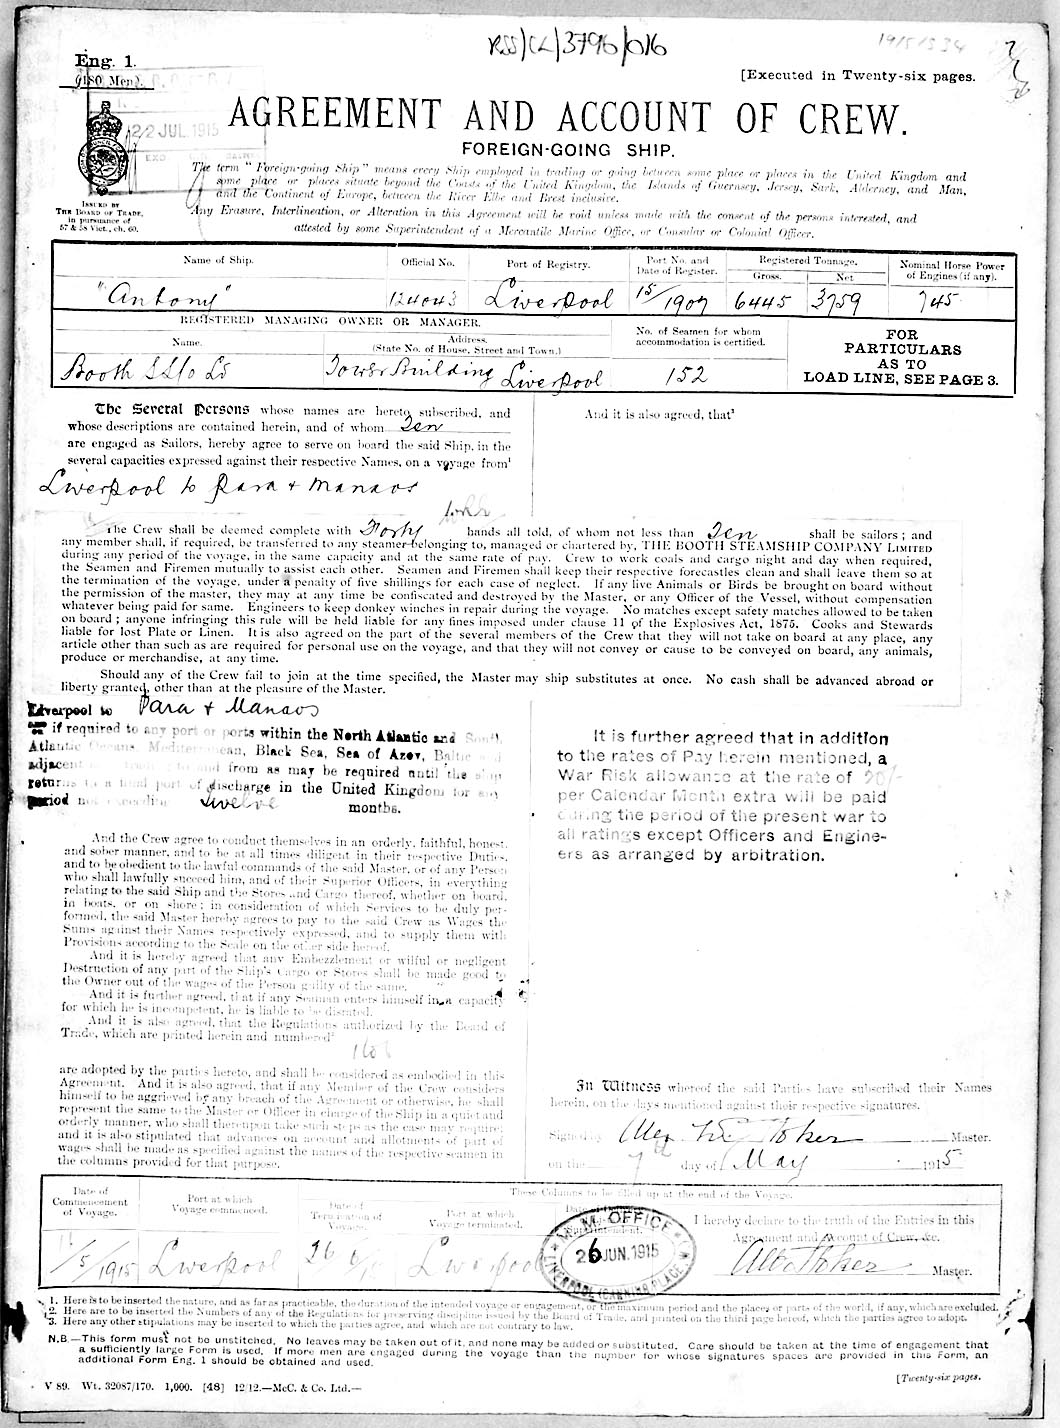 RSS/CL/3796/016
1915 1334
Eng. 1.
(180 Men).
[Executed in Twenty-six pages.
22 JUL 1915
AGREEMENT AND ACCOUNT OF CREW.
FOREIGN-GOING SHIP.
ISSUED BY
THE BOARD OF TRADE,
in pursuance of
57 & 58 Vict., ch. 60.
The term "Foreign-going Ship" means every Ship employed in trading or going between some place or places in the United Kingdom and
some place or places situate beyond the Coasts of the United Kingdom, the Islands of Guernsey, Jersey, Sark, Alderney, and Man,
and the Continent of Europe, between the River Elbe and Brest inclusive.
Any Erasure, Interlineation, or Alteration in this Agreement will be void unless made with the consent of the persons interested, and
attested by some Superintendent of a Mercantile Marine Office, or Consular or Colonial Officer.
Name of Ship. Official No. Port of Registry. Port No. and Date of Register. Registered Tonnage. Gross. Net Nominal Horse Power of Engines (if any).
"Antony" 124043 Liverpool 15/1907 6445 3759 745
REGISTERED MANAGING OWNER OR MANAGER.
Name. Address. (State No. of House, Street and Town.) No. of Seamen for whom accommodation is certified.
Booth SS Co Ld Tower Building Liverpool 152
FOR
PARTICULARS
AS TO
LOAD LINE, SEE PAGE 3.
The Several Persons whose names are hereto subscribed, and
whose descriptions are contained herein, and of whom Ten
are engaged as Sailors, hereby agree to serve on board the said Ship, in the
several capacities expressed against their respective Names, on a voyage from¹
Liverpool to Para & Manaos
And it is also agreed, that³
The Crew shall be deemed complete with Forty hands all told, of whom not less than Ten shall be sailors; and
any member shall, if required, be transferred to any steamer belonging to, managed or chartered by, THE BOOTH STEAMSHIP COMPANY LIMITED
during any period of the voyage, in the same capacity and at the same rate of pay. Crew to work coals and cargo night and day when required,
the Seamen and Firemen mutually to assist each other. Seamen and Firemen shall keep their respective forecastles clean and shall leave them so at
the termination of the voyage, under a penalty of five shillings for each case of neglect. If any live Animals or Birds be brought on board without
the permission of the master, they may at any time be confiscated and destroyed by the Master, or any Officer of the Vessel, without compensation
whatever being paid for same. Engineers to keep donkey winches in repair during the voyage. No matches except safety matches allowed to be taken
on board; anyone infringing this rule will be held liable for any fines imposed under clause 11 of the Explosives Act, 1875. Cooks and Stewards
liable for lost Plate or Linen. It is also agreed on the part of the several members of the Crew that they will not take on board at any place, any
article other than such as are required for personal use on the voyage, and that they will not convey or cause to be conveyed on board, any animals,
produce or merchandise, at any time.
Should any of the Crew fail to join at the time specified, the Master may ship substitutes at once. No cash shall be advanced abroad or
liberty granted, other than at the pleasure of the Master.
Liverpool to Para & Manaos
if required to any port or ports within the North Atlantic and South
Atlantic Oceans, Mediterranean, Black Sea, Sea of Azov, Baltic and
adjacent to and from as may be required until the ship
returns to a port of discharge in the United Kingdom for any
period not exceeding Twelve months.
It is further agreed that in addition
to the rates of Pay herein mentioned, a
War Risk allowance at the rate of 20/-
per Calendar Month extra will be paid
during the period of the present war to
all ratings except Officers and Engine-
ers as arranged by arbitration.
And the Crew agree to conduct themselves in an orderly, faithful, honest,
and sober manner, and to be at all times diligent in their respective Duties,
and to be obedient to the lawful commands of the said Master, or of any Person
who shall lawfully succeed him, and of their Superior Officers, in everything
relating to the said Ship and the Stores and Cargo thereof, whether on board,
in boats, or on shore; in consideration of which Services to be duly per-
formed, the said Master hereby agrees to pay to the said Crew as Wages the
Sums against their Names respectively expressed, and to supply them with
Provisions according to the Scale on the other side hereof.
And it is hereby agreed that any Embezzlement or wilful or negligent
Destruction of any part of the Ship's Cargo or Stores shall be made good to
the Owner out of the wages of the Person guilty of the same.
And it is further agreed, that if any Seaman enters himself in a capacity
for which he is incompetent, he is liable to be disrated.
And it is also agreed, that the Regulations authorized by the Board of
Trade, which are printed herein and numbered²
are adopted by the parties hereto, and shall be considered as embodied in this
Agreement. And it is also agreed, that if any Member of the Crew considers
himself to be aggrieved by any breach of the Agreement or otherwise, he shall
represent the same to the Master or Officer in charge of the Ship in a quiet and
orderly manner, who shall thereupon take such steps as the case may require;
and it is also stipulated that advances on account and allotments of part of
wages shall be made as specified against the names of the respective seamen in
the columns provided for that purpose.
In Witness whereof the said Parties have subscribed their Names
herein, on the days mentioned against their respective signatures.
Signed by Master.
on the 7th day of May 1915
These Columns to be filled up at the end of the Voyage.
Date of Commencement of Voyage. Port at which Voyage commenced. Date of Termination of Voyage. Port at which Voyage terminated.
/5/1915 Liverpool 26 6/15 Liverpool
M. M. OFFICE
26 JUN. 1915
LIVERPOOL (CANNING PLACE)
I hereby declare to the truth of the Entries in this
Agreement and Account of Crew, &c.
Master.
1. Here is to be inserted the nature, and as far as practicable, the duration of the intended voyage or engagement, or the maximum period and the places or parts of the world, if any, which are excluded.
2. Here are to be inserted the Numbers of any of the Regulations for preserving discipline issued by the Board of Trade, and printed on the third page hereof, which the parties agree to adopt.
3. Here any other stipulations may be inserted to which the parties agree, and which are not contrary to law.
N.B.—This form must not be unstitched. No leaves may be taken out of it, and none may be added or substituted. Care should be taken at the time of engagement that
a sufficiently large Form is used. If more men are engaged during the voyage than the number for whose signatures spaces are provided in this Form, an
additional Form Eng. 1 should be obtained and used.
[Twenty-six pages.
V 89. Wt. 32087/170. 1,000. [48] 12/12.—McC. & Co. Ltd.—